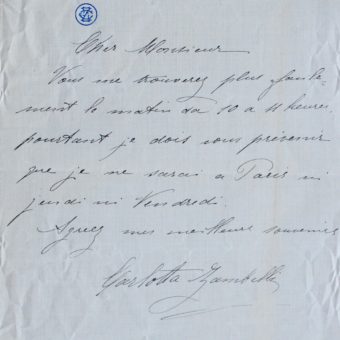 Cher Monsieur
Vous me trouverez plus facile-
ment le matin da 10 a 11 heures
pourtant je dois vous prévenir
que je ne sarai a Paris ni
jeudi ni Vendredi.
Agreez mes meilleurs souvenirs
Carlotta Zambelli